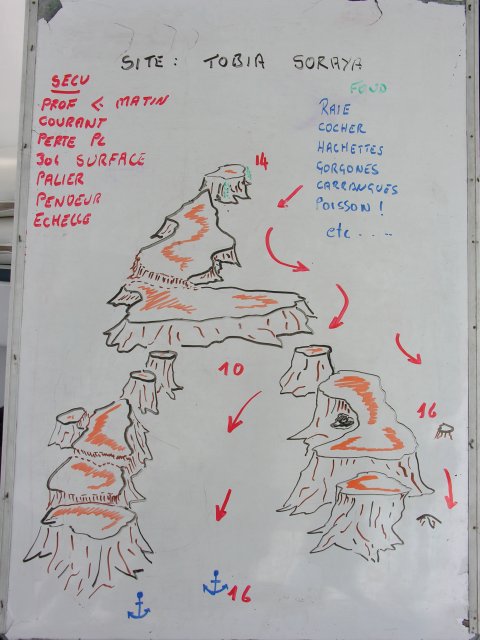 SITE: TOBIA SORAYA
SECU
PROF < MATIN
COURANT
PERTE PL
30' SURFACE
PALIER
PENDEUR
ECHELLE
FOND
RAIE
COCHER
HACHETTES
GORGONES
CARRANGUES
POISSON!
etc....
14
10
16
16